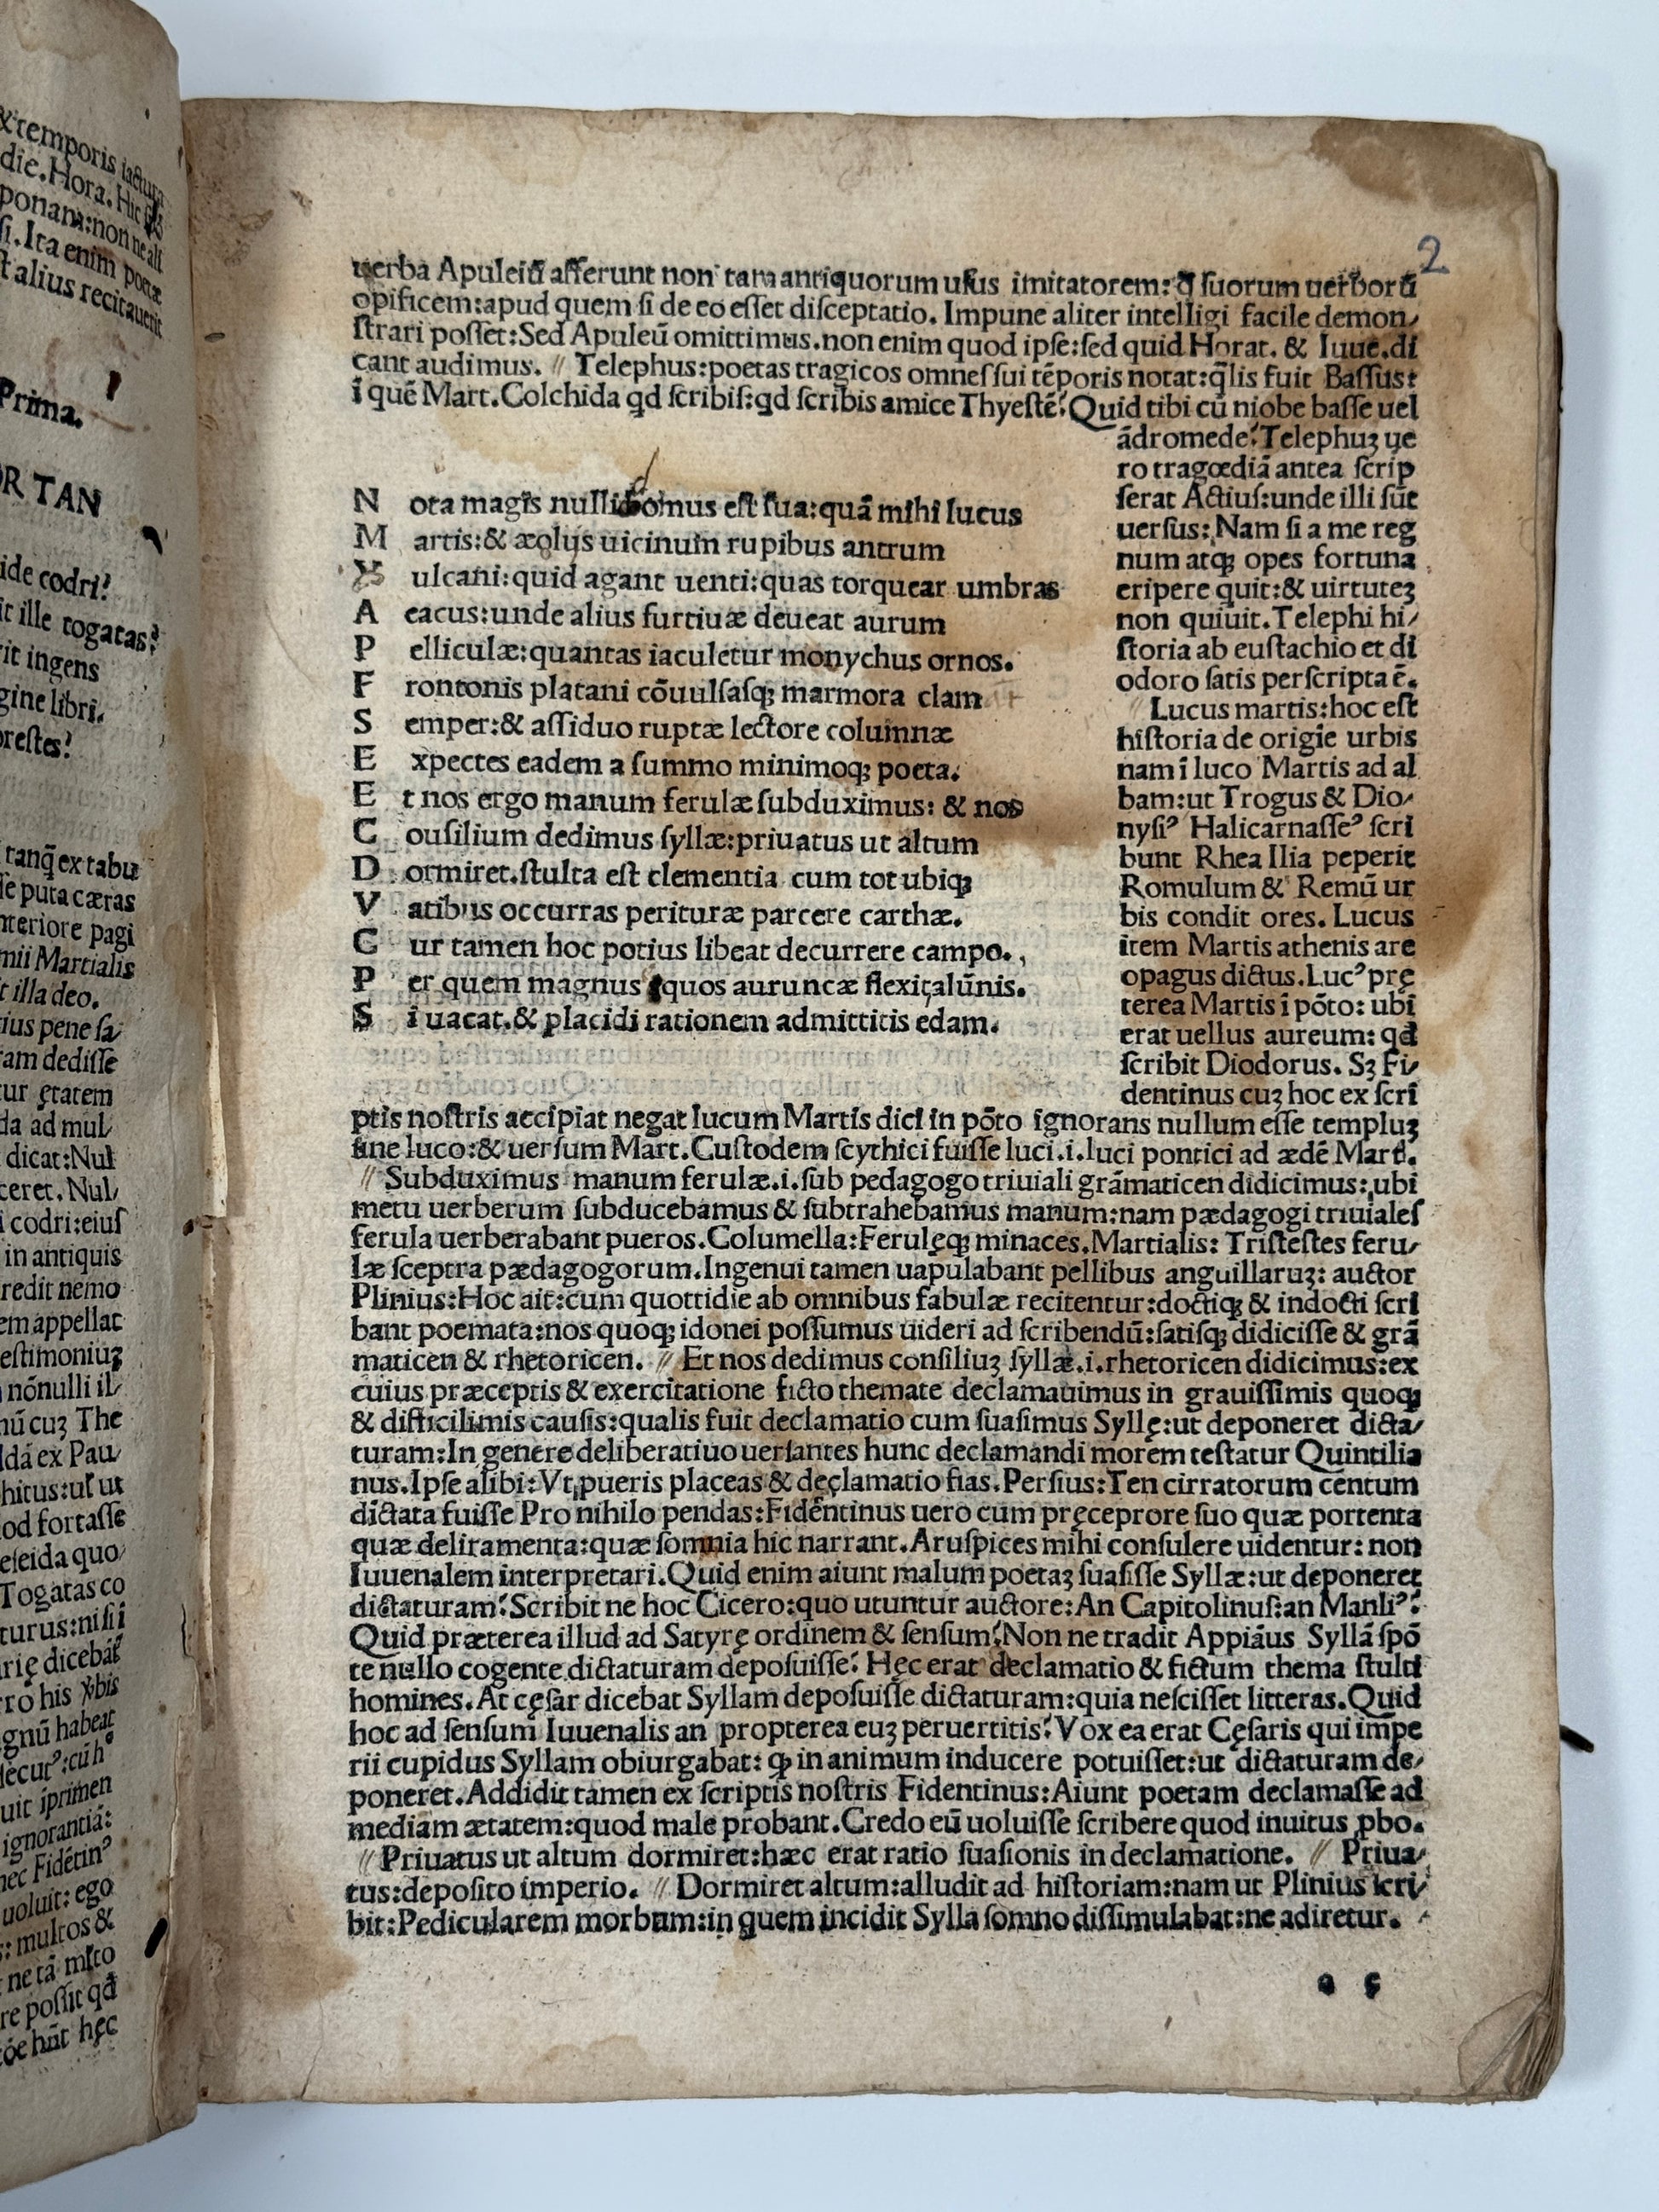 &temporis iactura
die. Hora. Hic
ponam:non ne ali
si. Ita enim poetæ
t alius recitauerit
Prima.
R TAN
ide codri?
it ille togatas?
rit ingens
gine libri.
restes?
tanq̃ ex tabu
se puta cæras
nteriore pagi
mii Martialis
t illa deo.
tius pene sa/
ram dedisse
tur ętatem
da ad mul/
dicat:Nul
ceret. Nul/
i codri:eius
in antiquis
redit nemo
em appellat
estimoniuȝ
nõnulli il/
nũ cuȝ The
ldã ex Pau/
hitus:ul̃ ut
od fortasse
eseida quo/
Togatas co
turus:nisi i
rię dicebãt
ro his
gnũ habeat
decutꝰ:cũ h°
uit ĩprimen
ignorantiã:
nec Fidẽtinꝰ
uoluit: ego
s: multos &
ne tã ml̃to
re possit qd̃
cõe hñt hęc
2
uerba Apuleiũ afferunt non tam antiquorum usus imitatorem: q̃ suorum uerborũ
opificem:apud quem si de eo esset disceptatio. Impune aliter intelligi facile demon/
strari posset:Sed Apuleũ omittimus.non enim quod ipse:sed quid Horat. & Iuue.di
cant audimus. // Telephus:poetas tragicos omnes sui tẽporis notat:q̃lis fuit Bassus:
ĩ quẽ Mart.Colchida qd scribis:qd scribis amice Thyestẽ?Quid tibi cũ niobe basse uel
ãdromede?Telephuȝ ue
ro tragœdiã antea scrip
serat Actius:unde illi sũt
uersus: Nam si a me reg
num atqȝ opes fortuna
eripere quit:& uirtuteȝ
non quiuit. Telephi hi/
storia ab eustachio et di
odoro satis perscripta ẽ.
// Lucus martis:hoc est
historia de origĩe urbis
nam ĩ luco Martis ad al
bam:ut Trogus & Dio/
nysiꝰ Halicarnasseꝰ scri
bunt Rhea Ilia peperit
Romulum & Remũ ur
bis condit ores. Lucus
item Martis athenis are
opagus dictus.Lucꝰ prę
terea Martis ĩ põto: ubi
erat uellus aureum: qd̃
scribit Diodorus. Sȝ Fi/
dentinus cuȝ hoc ex scri
N ota magis nulli domus est sua:quã mihi lucus
M artis:& æolijs uicinum rupibus antrum
V ulcani:quid agant uenti:quas torquear umbras
A eacus:unde alius furtiuæ deueat aurum
P elliculæ:quantas iaculetur monychus ornos.
F rontonis platani cõuulsasqȝ marmora clam
S emper:& assiduo ruptæ lectore columnæ
E xpectes eadem a summo minimoqȝ poeta.
E t nos ergo manum ferulæ subduximus: & nos
C ousilium dedimus syllæ:priuatus ut altum
D ormiret.stulta est clementia cum tot ubiqȝ
V atibus occurras perituræ parcere carthæ.
C ur tamen hoc potius libeat decurrere campo.
P er quem magnus equos auruncæ flexit alũnis.
S i uacat.& placidi rationem admittitis edam.
ptis nostris accipiat negat lucum Martis dici in põto ignorans nullum esse templuȝ
sine luco:& uersum Mart.Custodem scythici fuisse luci.i.luci pontici ad ædẽ Mart.
// Subduximus manum ferulæ.i.sub pedagogo triuiali grãmaticen didicimus:ubi
metu uerberum subducebamus & subtrahebamus manum:nam pædagogi triuiales
ferula uerberabant pueros.Columella:Feruleqȝ minaces.Martialis: Tristestes feru/
læ sceptra pædagogorum.Ingenui tamen uapulabant pellibus anguillaruȝ: auctor
Plinius:Hoc ait:cum quottidie ab omnibus fabulæ recitentur:doctiqȝ & indocti scri
bant poemata:nos quoqȝ idonei possumus uideri ad scribendũ:satisqȝ didicisse & grã
maticen & rhetoricen. // Et nos dedimus consiliuȝ syllæ.i.rhetoricen didicimus:ex
cuius præceptis & exercitatione ficto themate declamauimus in grauissimis quoqȝ
& difficilimis causis:qualis fuit declamatio cum suasimus Syllę:ut deponeret dicta/
turam:In genere deliberatiuo uersantes hunc declamandi morem testatur Quintilia
nus.Ipse alibi:Vt pueris placeas & dęclamatio fias.Persius:Ten cirratorum centum
dictata fuisse Pro nihilo pendas:Fidẽntinus uero cum pręceprore suo quæ portenta
quæ deliramenta:quæ somnia hic narrant.Aruspices mihi consulere uidentur: non
Iuuenalem interpretari.Quid enim aiunt malum poetaȝ suasisse Syllæ:ut deponeret
dictaturam?Scribit ne hoc Cicero:quo utuntur auctore:An Capitolinus:an Manliꝰ?
Quid præterea illud ad Satyrę ordinem & sensum?Non ne tradit Appiãus Syllã spõ
te nullo cogente dictaturam deposuisse? Hęc erat declamatio & fictum thema stulti
homines. At cęsar dicebat Syllam deposuisse dictaturam:quia nescisset litteras.Quid
hoc ad sensum Iuuenalis an propterea euȝ peruertitis?Vox ea erat Cęsaris qui impe
rii cupidus Syllam obiurgabat: ꝙ in animum inducere potuisset:ut dictaturam de/
poneret.Addidit tamen ex scriptis nostris Fidentinus:Aiunt poetam declamasse ad
mediam ætatem:quod male probant.Credo eũ uoluisse scribere quod inuitus ꝓbo.
// Priuatus ut altum dormiret:hæc erat ratio suasionis in declamatione. // Priua/
tus:deposito imperio. // Dormiret altum:alludit ad historiam:nam ut Plinius scri/
bit:Pedicularem morbum:in quem incidit Sylla somno dissimulabat:ne adiretur.